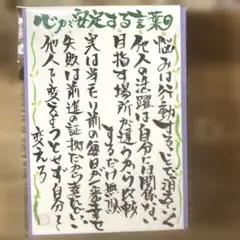 心が安定する言葉
悩みは行動することで消えていく
他人の活躍は自分には関係ない
目指す場所が違うから比較
するだけ無駄
実は当たり前の毎日が一番幸せ
失敗は前進の証拠だから幸せ
他人を変えようとせず自分で
変える